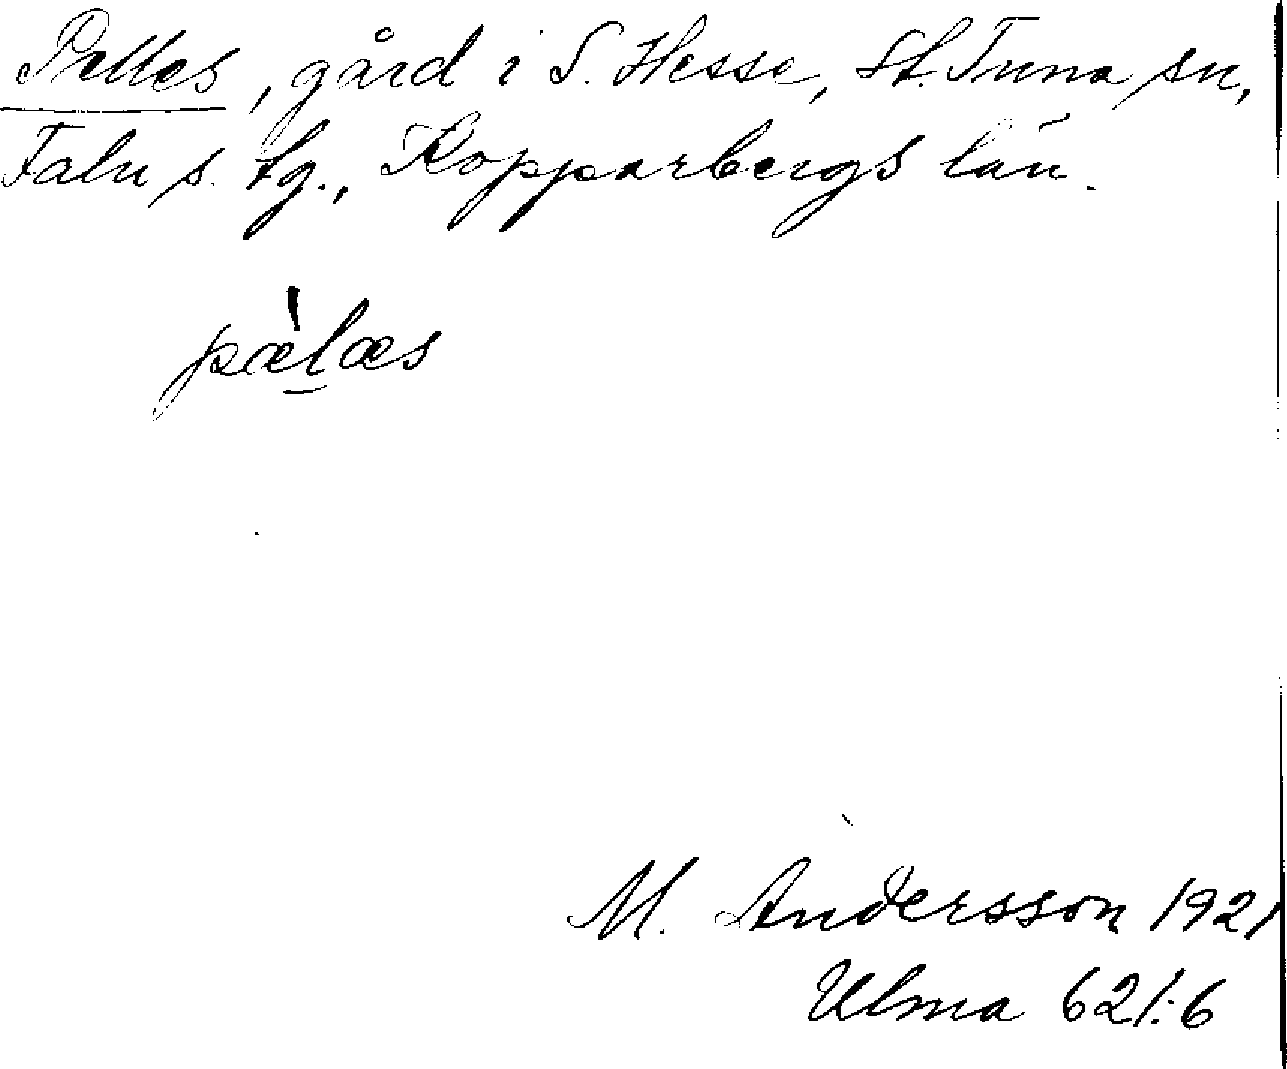 Pelles, gård i S. Hesse, St. Tuna sn,
Falu s. tg., Kopparbergs län.
pæ̀l̲æs
M. Andersson 1921
Ulma 621:6